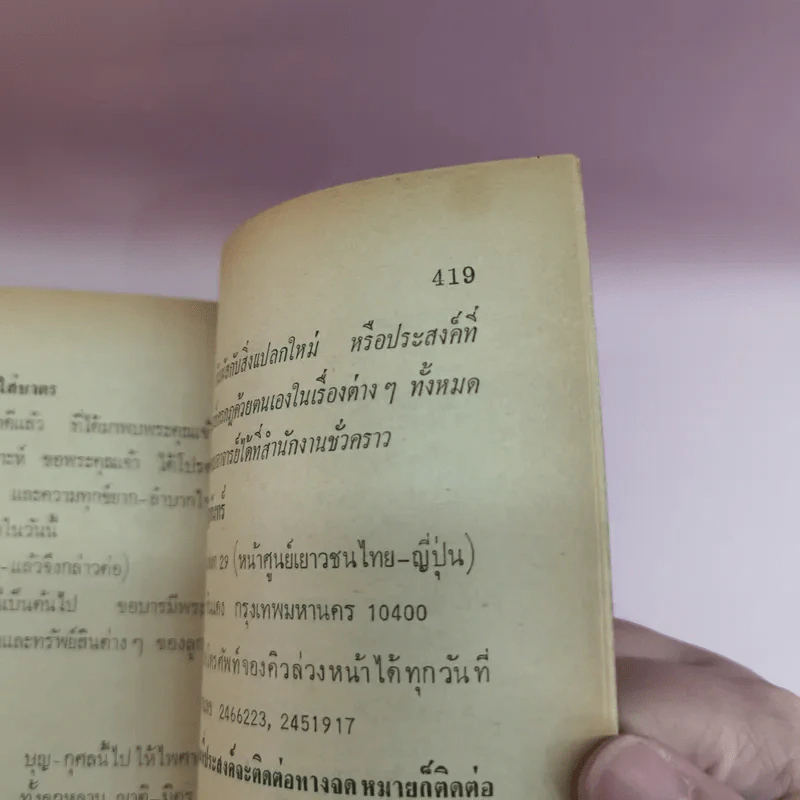 ใส่บาตร
ดีแล้ว ที่ได้มาพบพระคุณเจ้า
ขอพระคุณเจ้า ได้โปรด
และความทุกข์ยาก-ลำบากใจ
ในวันนี้
-แล้วจึงกล่าวต่อ)
เป็นต้นไป ขอบารมีพระ
และทรัพย์สินต่างๆ ของลูก
บุญ-กุศลนี้ไป ให้ไพศาล
ทั้งลูกหลาน ญาติ-มิตร
419
กับสิ่งแปลกใหม่ หรือประสงค์ที่
ด้วยตนเองในเรื่องต่างๆ ทั้งหมด
อาจารย์ได้ที่สำนักงานชั่วคราว
29 (หน้าศูนย์เยาวชนไทย-ญี่ปุ่น)
กรุงเทพมหานคร 10400
โทรศัพท์จองคิวล่วงหน้าได้ทุกวันที่
2466223, 2451917
ประสงค์จะติดต่อทางจดหมายก็ติดต่อ